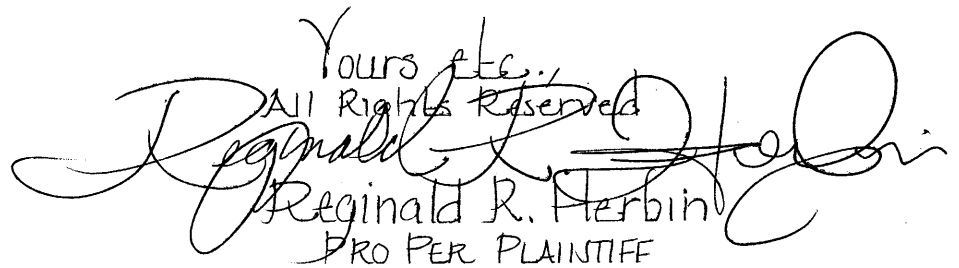 Yours etc.,
All Rights Reserved
Reginald R. Herbin
Reginald R. Herbin
PRO PER PLAINTIFF